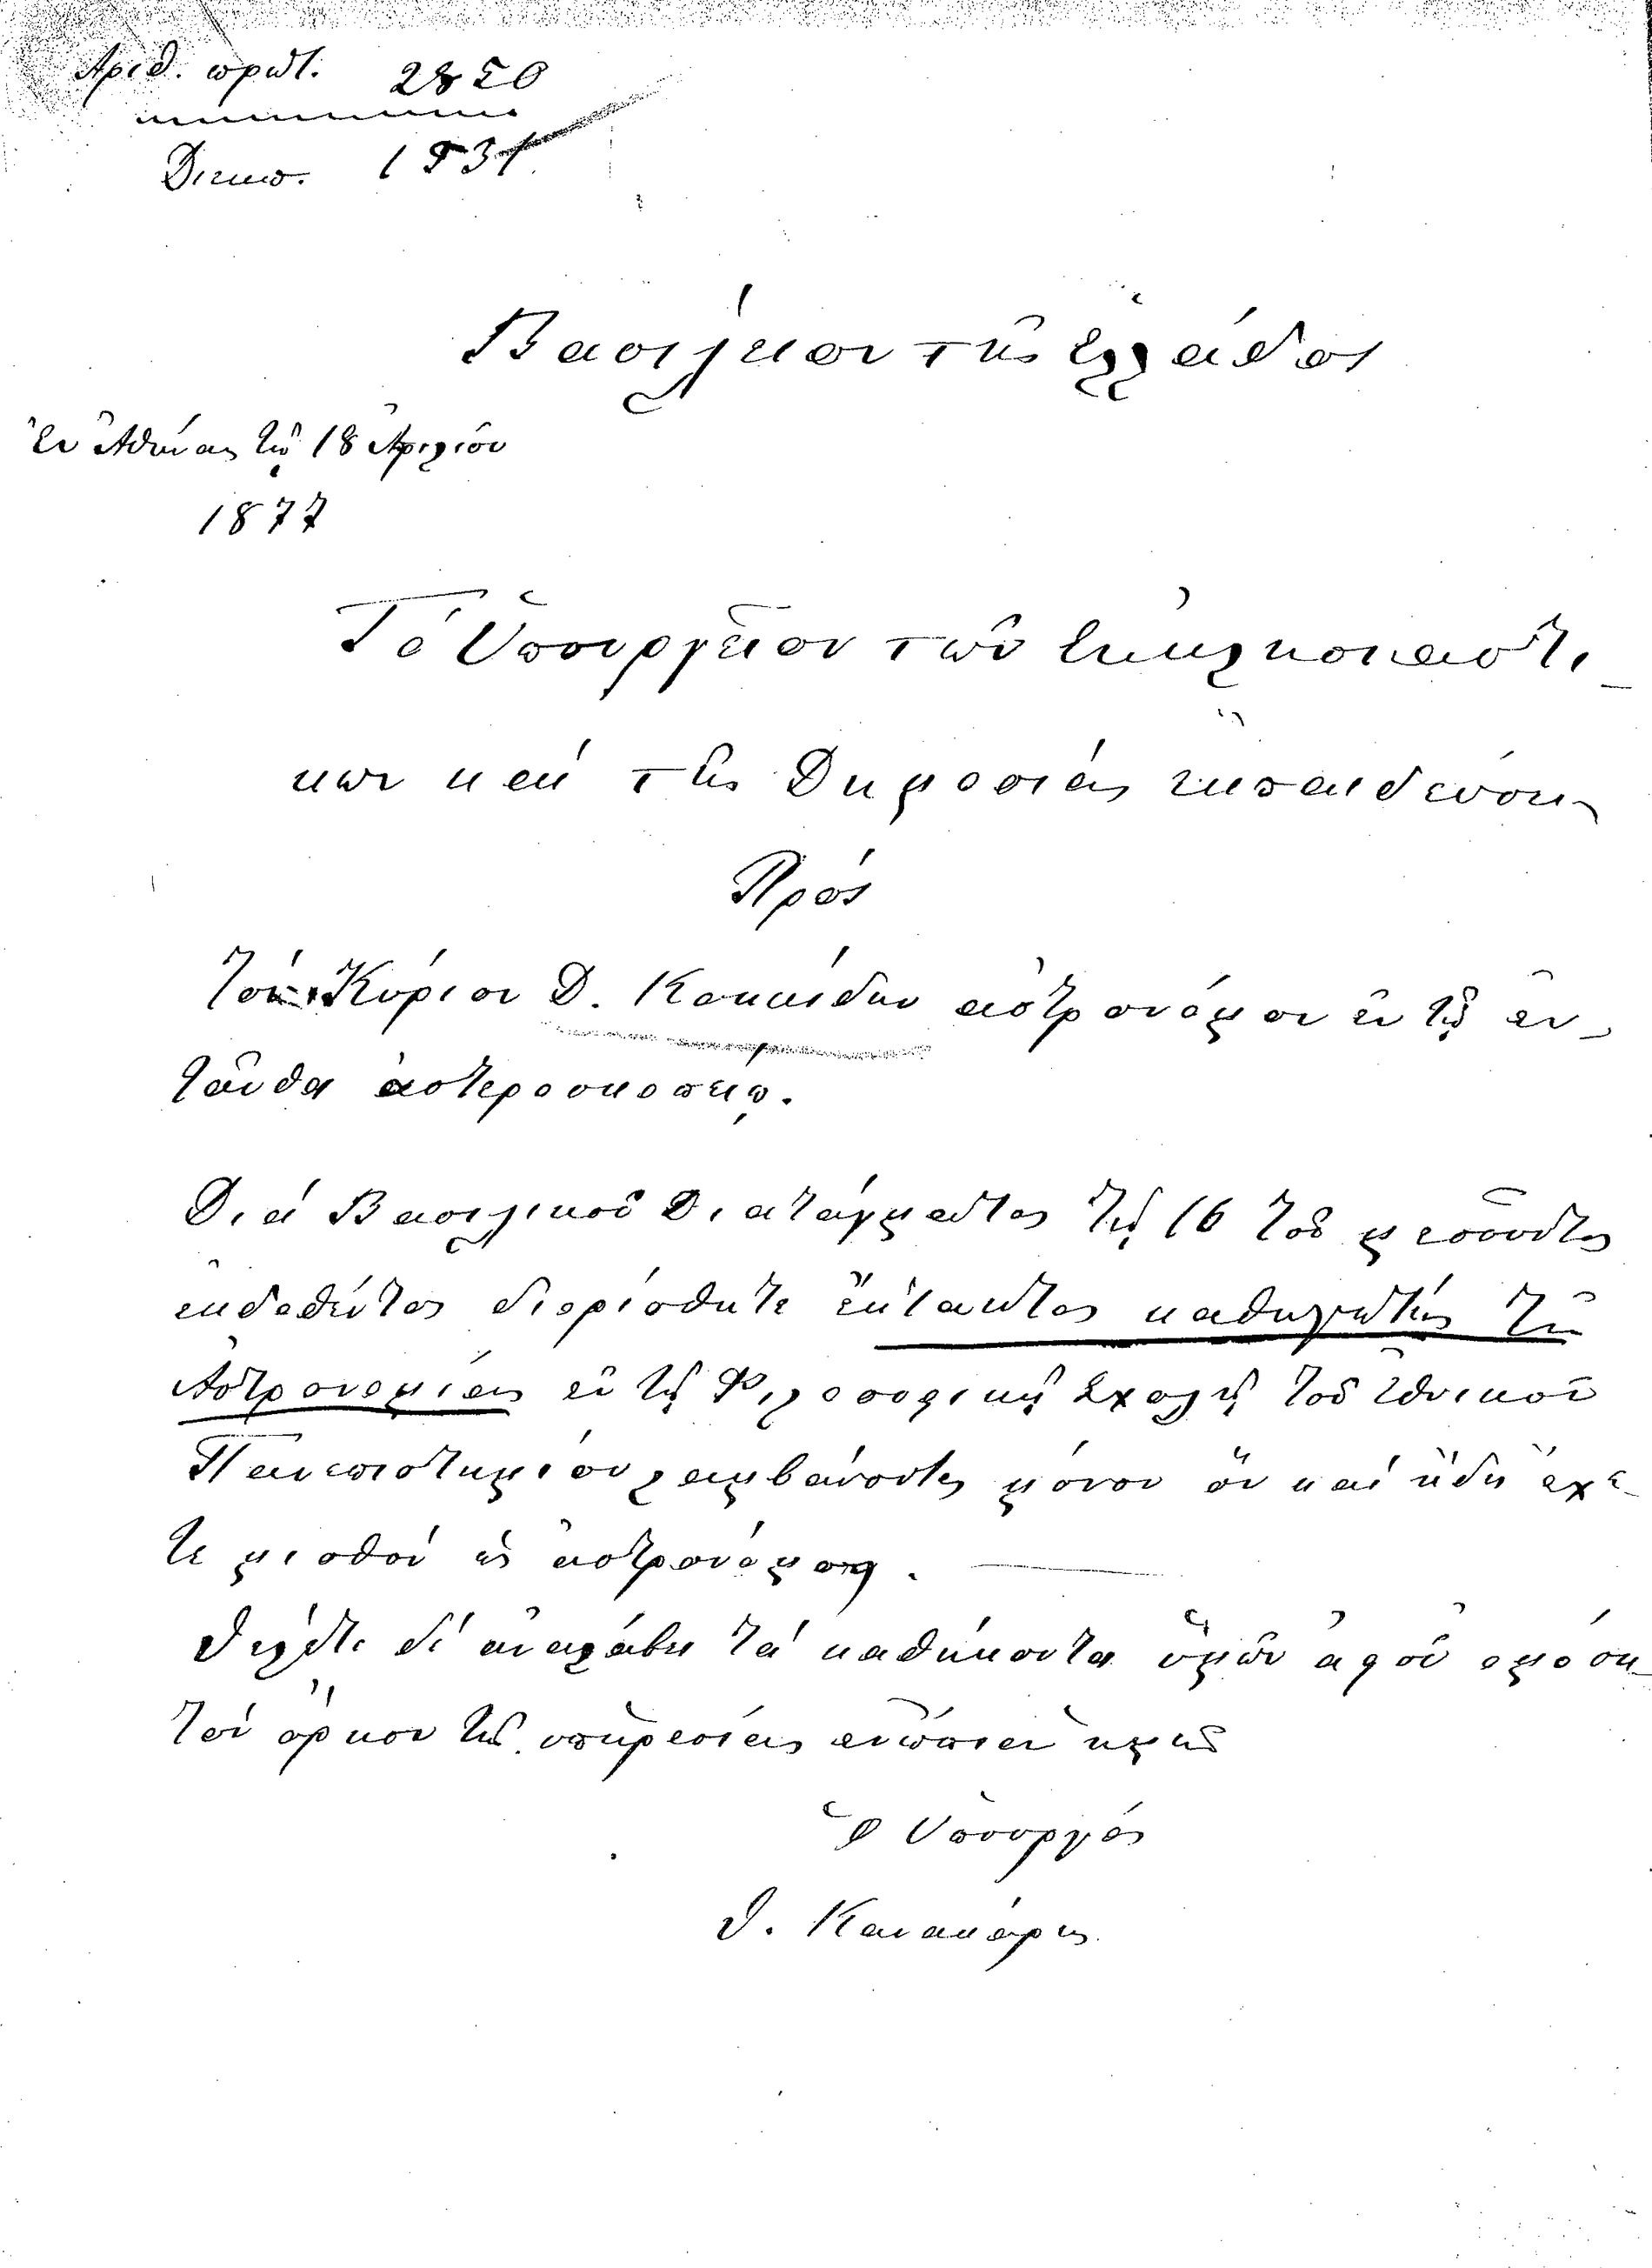 Ἀριθ. πρωτ. 2820
Διεκπ. 1831
Βασίλειον τῆς Ἑλλάδος
Ἐν Ἀθήναις τῇ 18 Ἀπριλίου
1877
Τὸ Ὑπουργεῖον τῶν Ἐκκλησιαστι-
κῶν καὶ τῆς Δημοσίας ἐκπαιδεύσεως
Πρὸς
Τὸν Κύριον Δ. Κοκκίδην ἀστρονόμον ἐν τῷ ἐν-
ταῦθα ἀστεροσκοπείῳ.
Διὰ Βασιλικοῦ Διατάγματος τῇ 16 τοῦ μεσοῦντος
ἐκδοθέντος διορίσθητε ἔκτακτος καθηγητὴς τῆς
Ἀστρονομίας ἐν τῇ Φιλοσοφικῇ Σχολῇ τοῦ Ἐθνικοῦ
Πανεπιστημίου λαμβάνοντες μόνον ὃν καὶ ἤδη ἔχε-
τε μισθὸν ὡς ἀστρονόμος.
Θέλετε δὲ ἀναλάβει τὰ καθήκοντα ὑμῶν ἀφοῦ ὀμόσητε
τὸν ὅρκον τῆς ὑπηρεσίας ἐνώπιον ἡμῶν
Ὁ Ὑπουργὸς
Θ. Κανακάρης